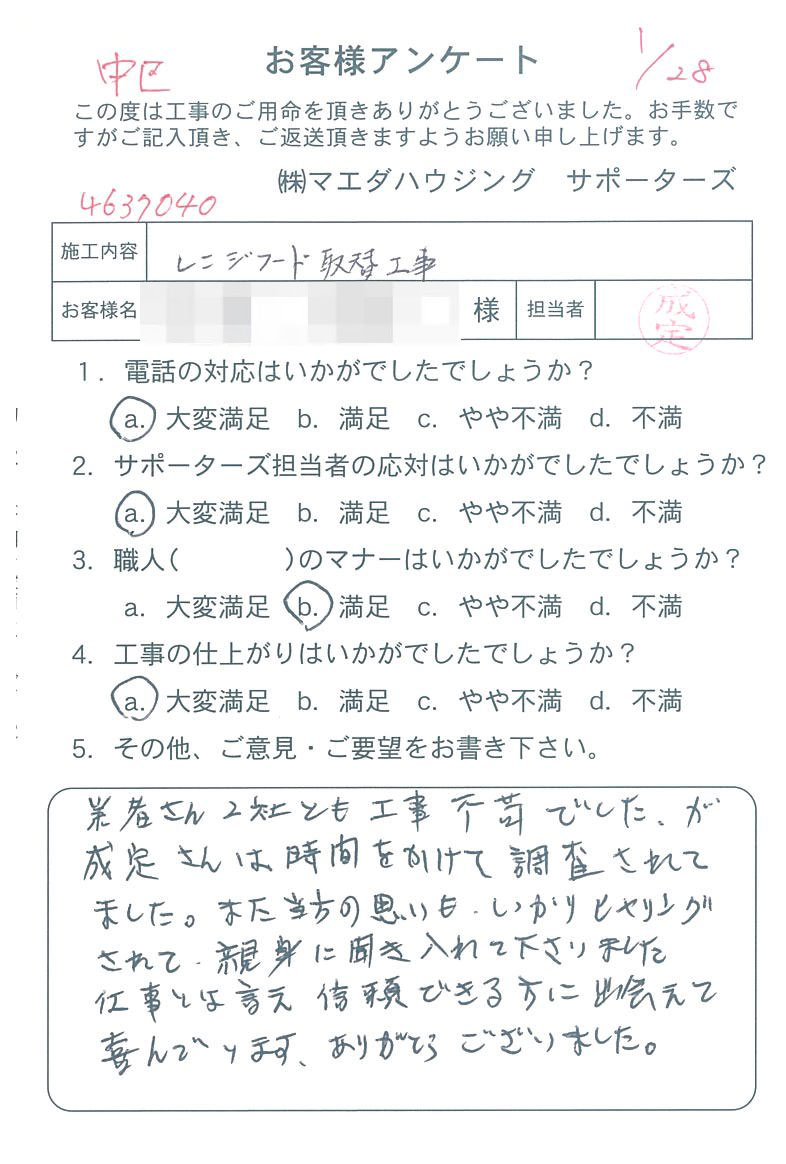 お客様アンケート
中区
1/28
この度は工事のご用命を頂きありがとうございました。お手数で
すがご記入頂き、ご返送頂きますようお願い申し上げます。
㈱マエダハウジング サポーターズ
4637040
施工内容 レンジフード取替工事
お客様名 様 担当者 成定
1. 電話の対応はいかがでしたでしょうか？
a. 大変満足 b. 満足 c. やや不満 d. 不満
2. サポーターズ担当者の応対はいかがでしたでしょうか？
a. 大変満足 b. 満足 c. やや不満 d. 不満
3. 職人( )のマナーはいかがでしたでしょうか？
a. 大変満足 b. 満足 c. やや不満 d. 不満
4. 工事の仕上がりはいかがでしたでしょうか？
a. 大変満足 b. 満足 c. やや不満 d. 不満
5. その他、ご意見・ご要望をお書き下さい。
業者さん2社とも工事不可でした、が
成定さんは時間をかけて調査されて
ました。また当方の思いも、しっかりヒヤリング
されて、親身に聞き入れて下さいました
仕事とは言え信頼できる方に出会えて
喜んでいます、ありがとうございました。